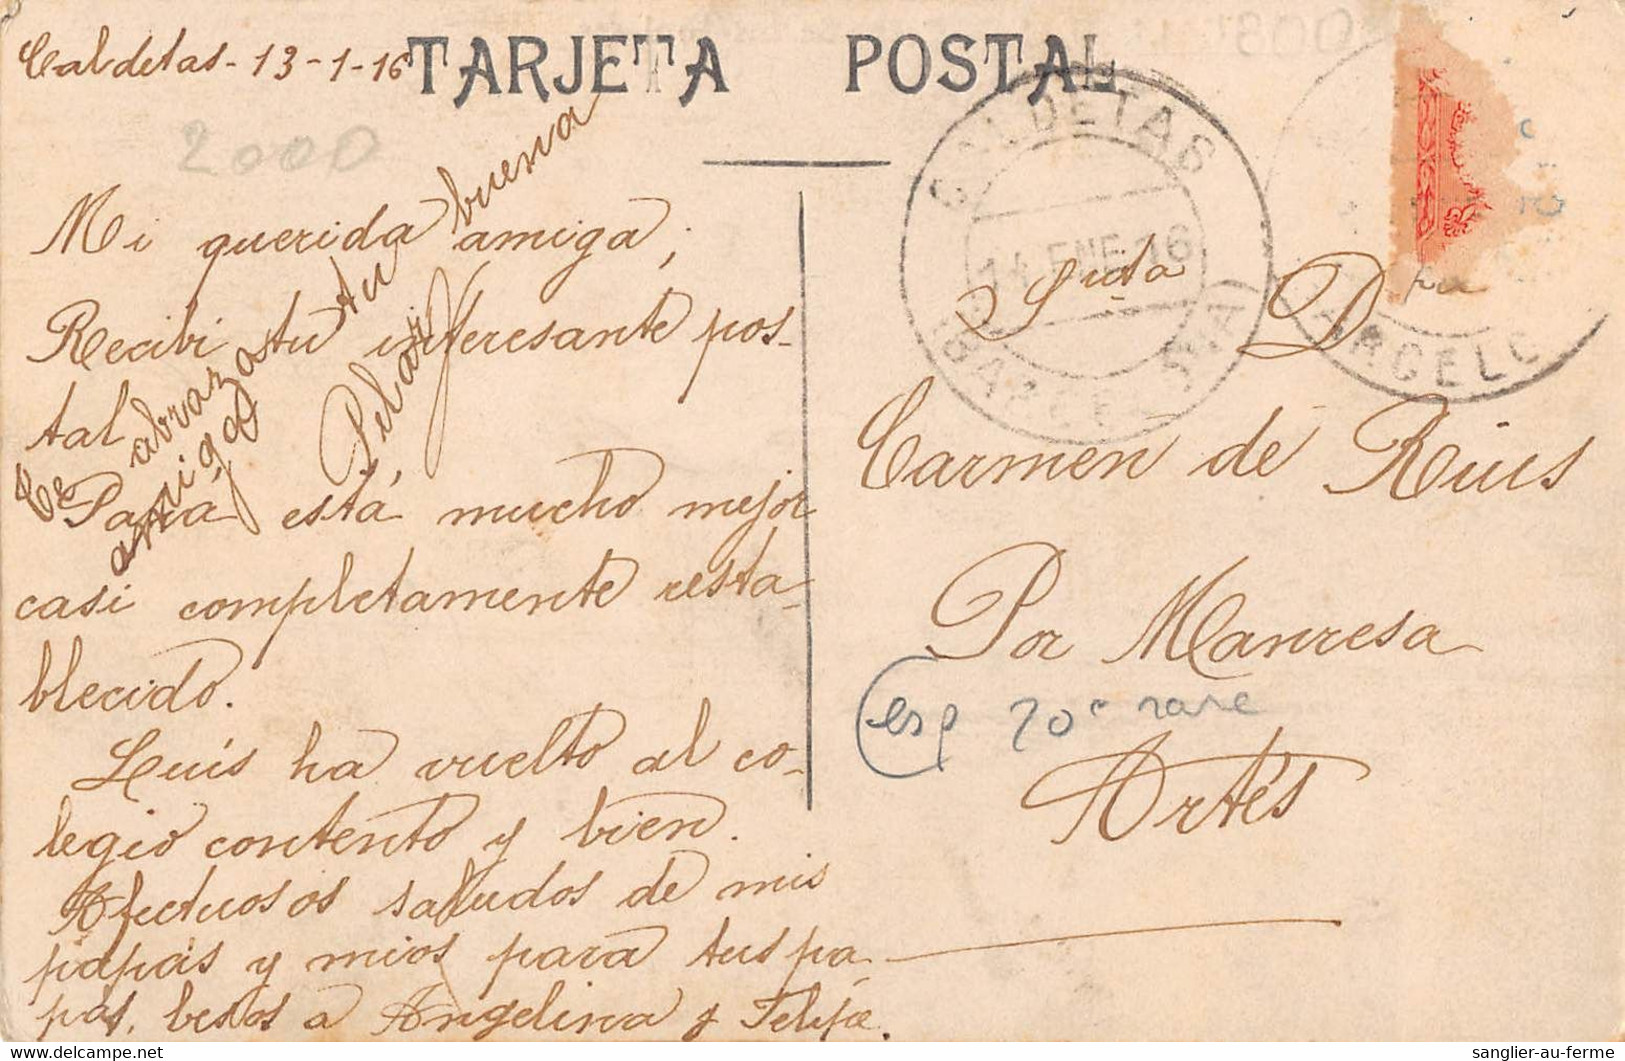 Caldetas - 13-1-16
TARJETA POSTAL
2000
Mi querida amiga;
Recibi tu interesante pos-
tal
Papá está mucho mejor
casi completamente resta-
blecido.
Luís ha vuelto al co-
legio contento y bien.
Afectuosos saludos de mis
papás y mios para tus pa-
pás, besos a Angelina y Felipe.
Te abraza tu buena
amiga
Pilar
CALDETAS
14 ENE 16
(BARCELONA)
Srta D
Carmen de Rius
Por Manresa
esp 70c rare
Artés
sanglier-au-ferme